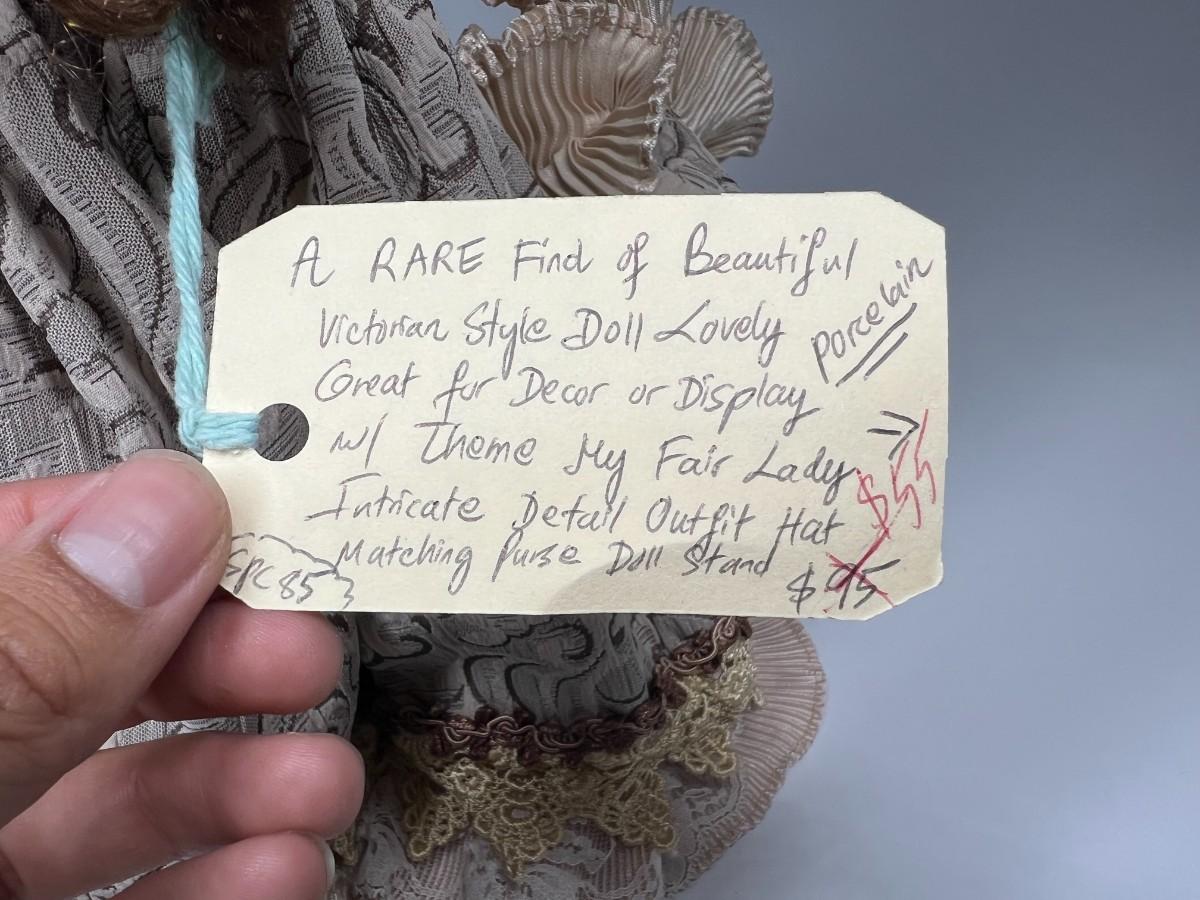 A RARE Find of Beautiful
Victorian Style Doll Lovely
Porcelain
Great for Decor or Display
w/ Theme My Fair Lady
Intricate Detail Outfit Hat
Matching Purse Doll Stand
$55
$95